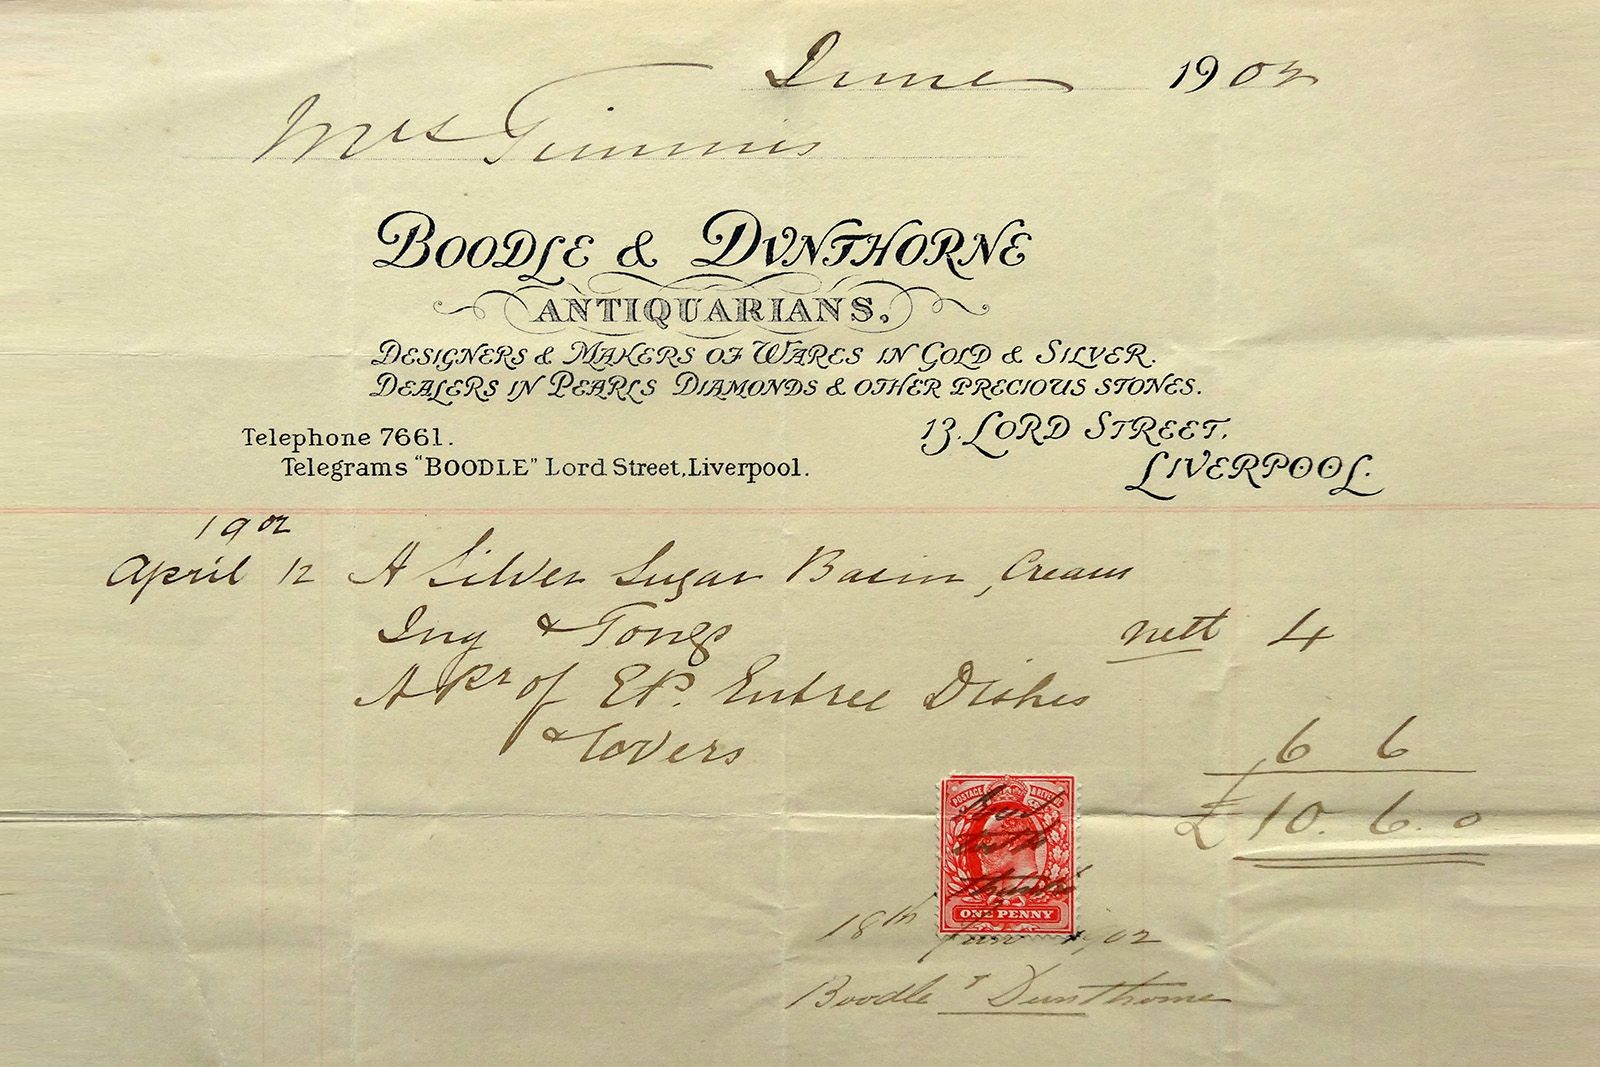 June 1902
Mrs Timmis
BOODLE & DVNTHORNE
ANTIQUARIANS,
DESIGNERS & MAKERS OF WARES IN GOLD & SILVER.
DEALERS IN PEARLS DIAMONDS & OTHER PRECIOUS STONES.
Telephone 7661.
Telegrams "BOODLE" Lord Street, Liverpool.
13, LORD STREET,
LIVERPOOL.
1902
April 12 A Silver Sugar Basin, Cream
Jug & Tongs nett 4
A Pr of E.P. Entree Dishes
& Covers 6 6
£10. 6. 0
POSTAGE & REVENUE
ONE PENNY
18th 1902
Boodle & Dunthorne